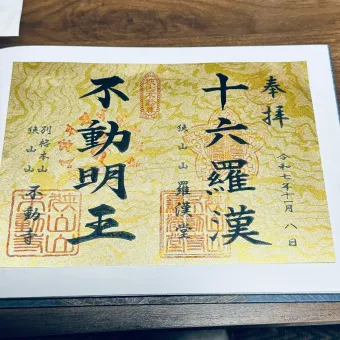 奉拝
令和七年十一月八日
十六羅漢
狭山山 羅漢堂
不動明王
別格本山
狭山山 不動寺